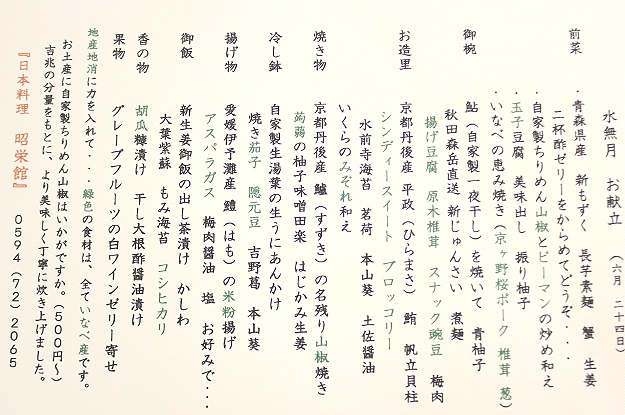 水無月 お献立 (六月 二十四日)
前菜 ・青森県産 新もずく 長芋素麺 蟹 生姜
二杯酢ゼリーをからめてどうぞ・・・
・自家製ちりめん山椒とピーマンの炒め和え
・玉子豆腐 美味出し 振り柚子
・いなべの恵み焼き(京ヶ野桜ポーク 椎茸 葱)
御椀 鮎(自家製一夜干し)を焼いて 青柚子
秋田森岳直送 新じゅんさい 煮麺
揚げ豆腐 原木椎茸 スナック豌豆 梅肉
お造里 京都丹後産 平政(ひらまさ) 鮪 帆立貝柱
シンディースイート ブロッコリー
水前寺海苔 茗荷 本山葵 土佐醤油
いくらのみぞれ和え
焼き物 京都丹後産 鱸(すずき)の名残り山椒焼き
蒟蒻の柚子味噌田楽 はじかみ生姜
冷し鉢 自家製生湯葉の生うにあんかけ
焼き茄子 隠元豆 吉野葛 本山葵
揚げ物 愛媛伊予灘産 鱧(はも)の米粉揚げ
アスパラガス 梅肉醤油 塩 お好みで・・・
御飯 新生姜御飯の出し茶漬け かしわ
大葉紫蘇 もみ海苔 コシヒカリ
香の物 胡瓜糠漬け 干し大根酢醤油漬け
果物 グレープフルーツの白ワインゼリー寄せ
地産地消に力を入れて・・・緑色の食材は、全ていなべ産です。
お土産に自家製ちりめん山椒はいかがですか。(500円~)
吉兆の分量をもとに、より美味しく丁寧に炊き上げました。
『日本料理 昭栄館』 0594(72)2065